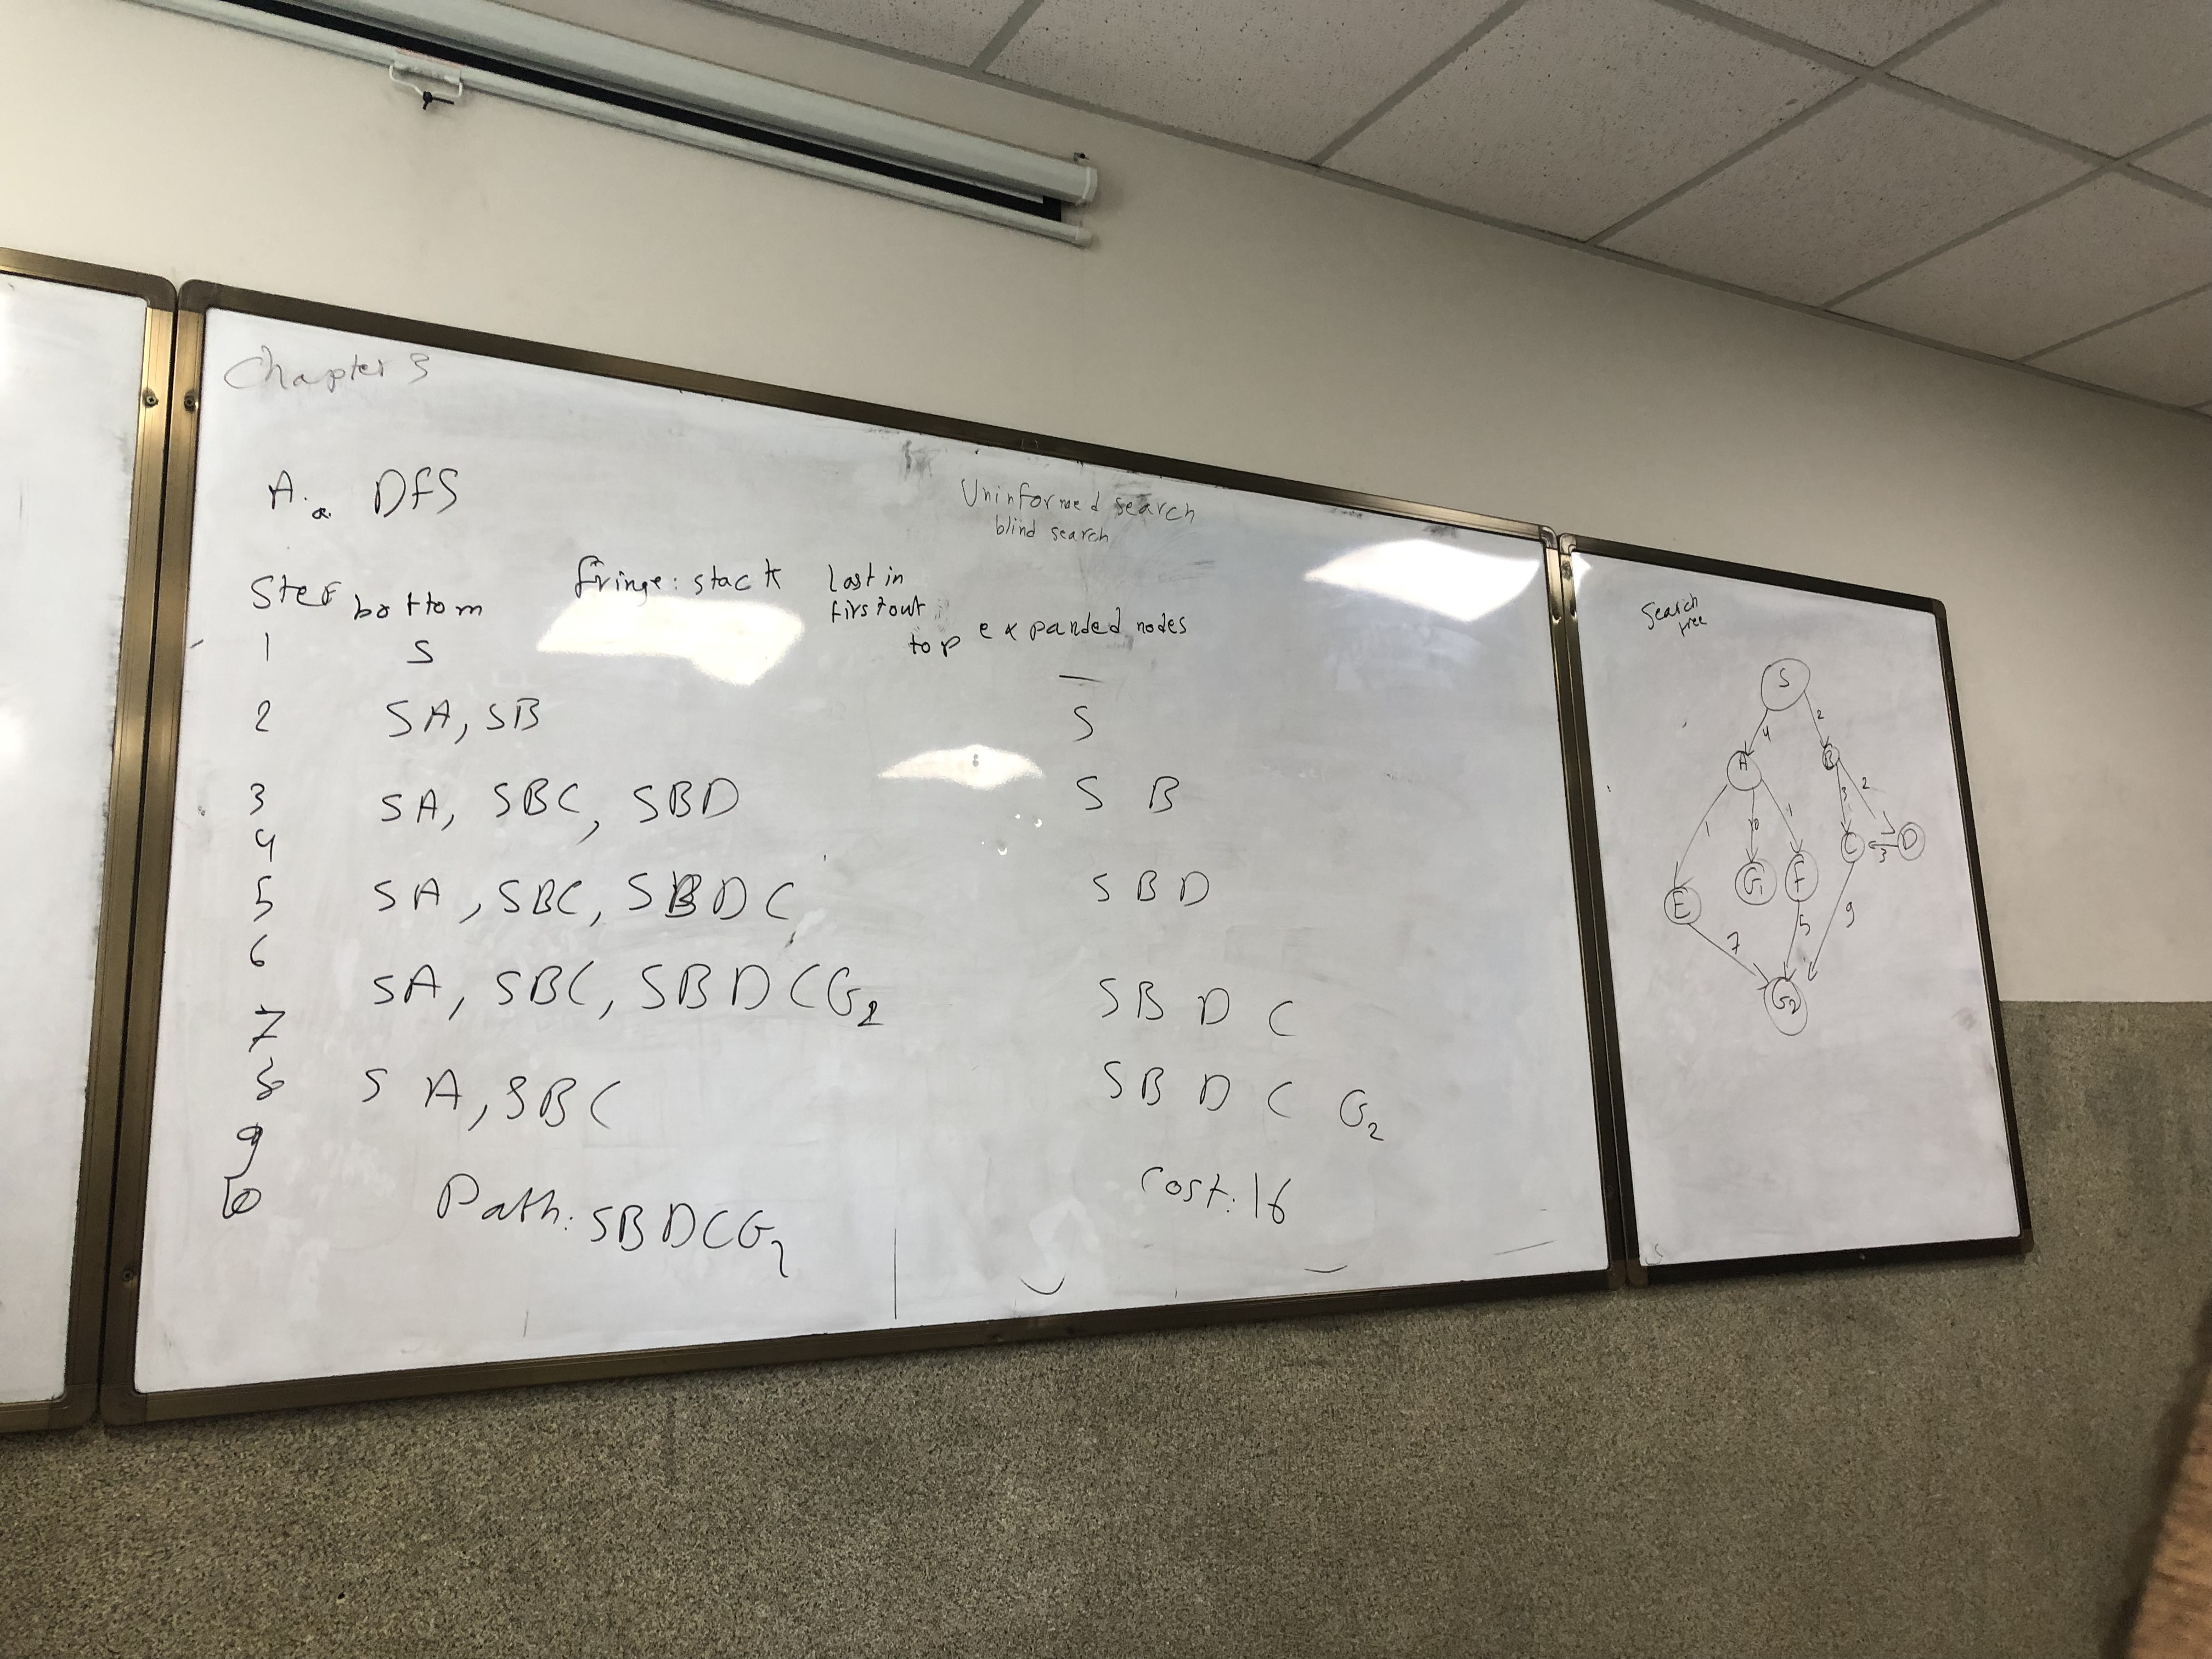 Chapter 3
A.a. DFS
Uninformed search
blind search
fringe: stack
Last in
first out
Step bottom
top expanded nodes
1 S —
2 SA, SB S
3 SA, SBC, SBD S B
4
5 SA, SBC, SBDC S B D
6
SA, SBC, SBDCG2 S B D C
7
8 S A, SBC S B D C G2
9
10
Path: SBDCG2
Cost: 16
Search
tree
S
4 2
A B
1 10 1 3 2
E G1 F C 3 D
7 5 9
G2